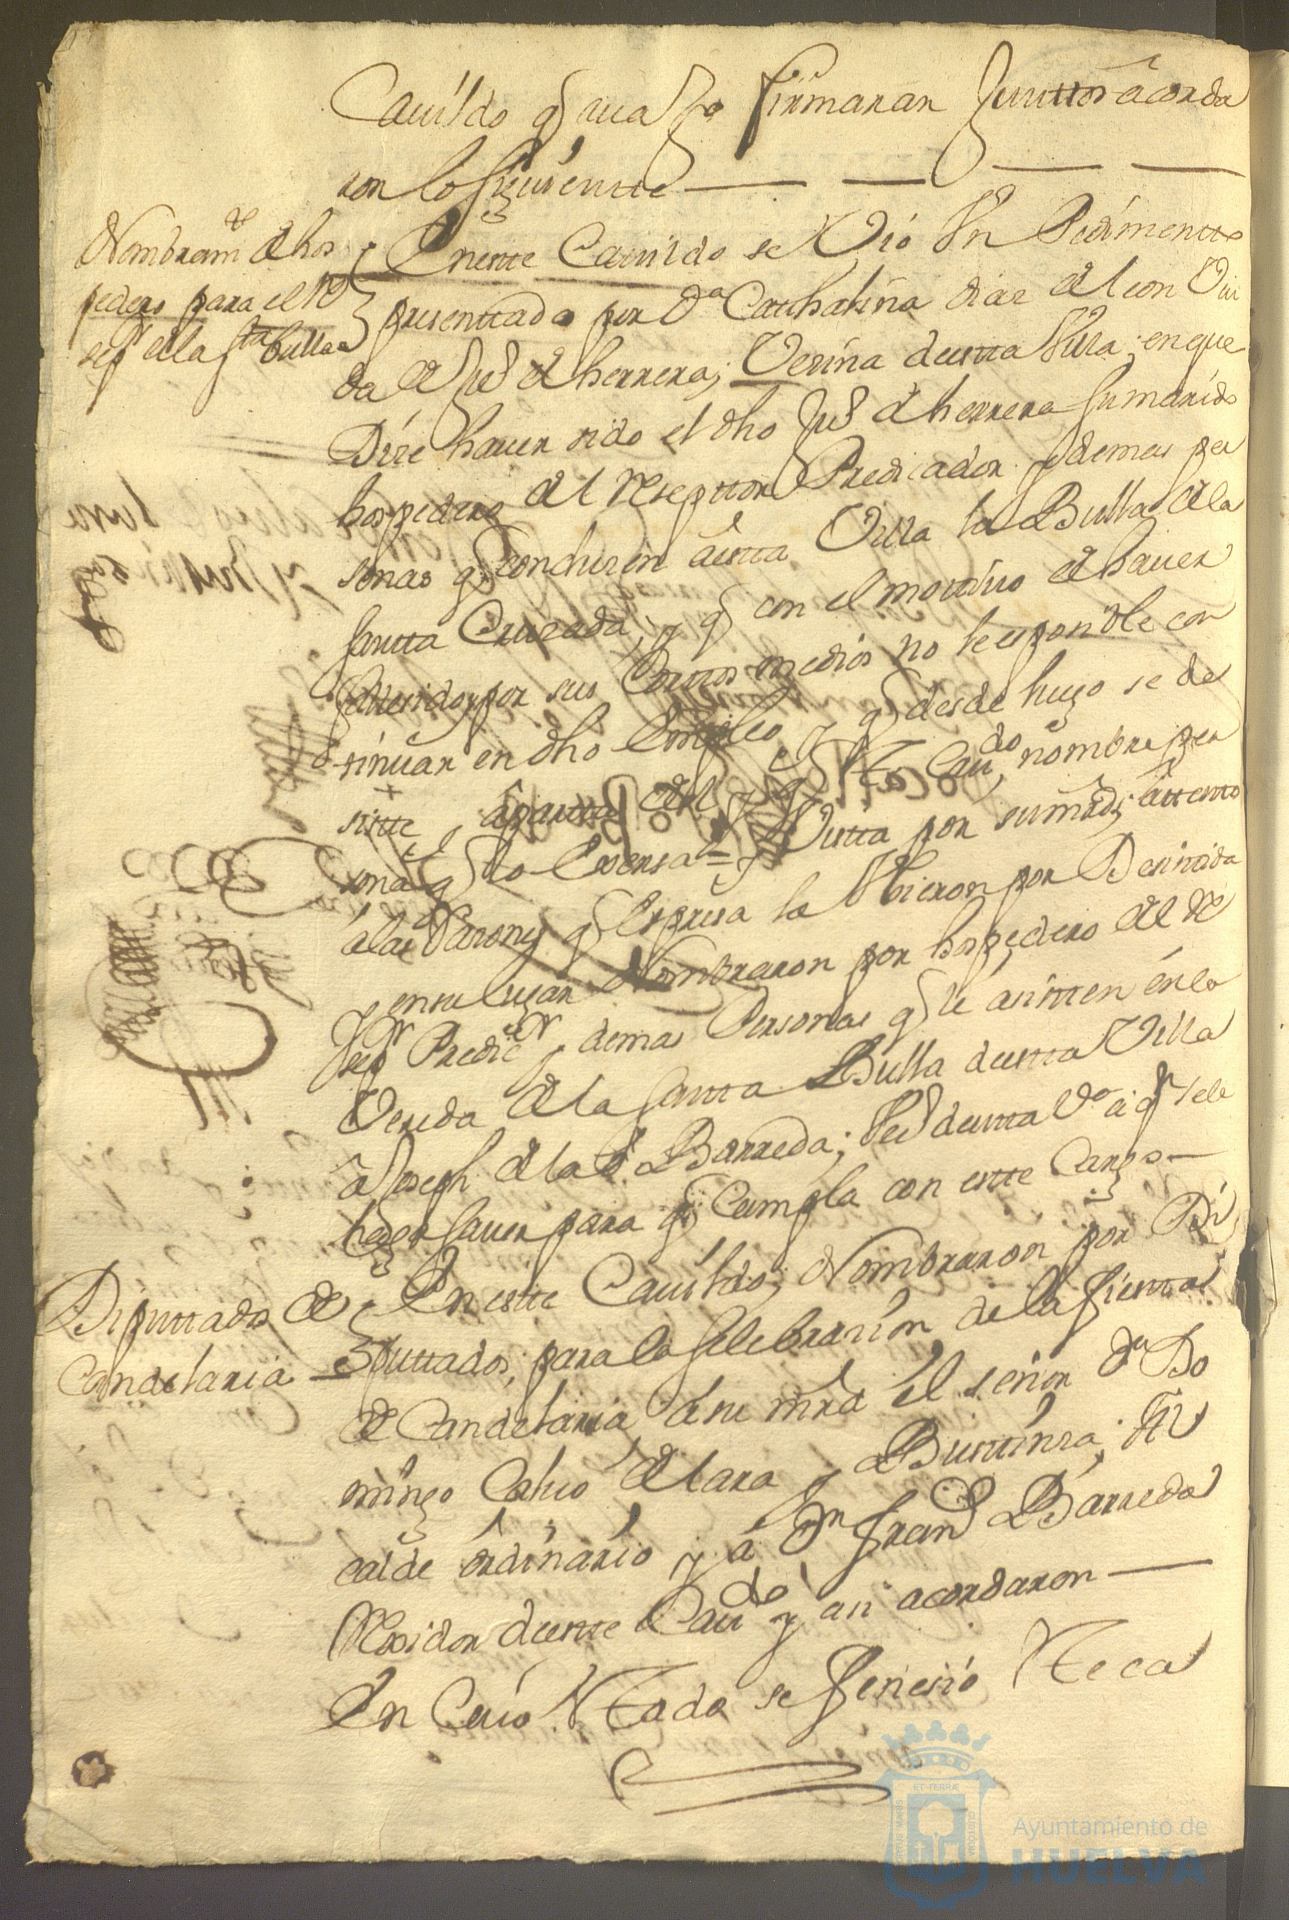 Cavildo q aca fo firmaran Junttos acorda
ron lo siguiente
Nombramto de hos
pedero para el Re
sepr de la sta bulla
En este Cavildo se vió un Pedimentto
presenttado por Da Catthalina diaz de leon viu
da de Jud de herrera; Vezina de esta villa; en que
Dize haver sido el dho Jud de herrera su marido
hospedero del resepttor Predicador y demas per
sonas q conduzen a esta Villa la Bulla de la
santta Cruzada; y q con el mottivo de haver
fallesido y por sus Corttos medios no le es posible con
tinuar en dho Empleo y q desde luego se de
siste y apartta del y q este Cavdo nombre per
sona q lo Exersa = y vistta por su mrds; attentto
á las Razones q Espresa la Ubieron por Desistida
y en su lugar Nombraron por hospedero del Re
sepr Predicr y demas Personas q le asisten en la
Vereda de la santta Bulla de esta Villa
a Joseph de la Barreda; Vezo de esta Va á qn se le
haga saver para q Cumpla con este Cargo
Diputtados de
Candelaria
En este Cavildo; Nombraron por Di
puttados; para la selebrazion de la fiestta
de Candelaria, á su mrd el señor Dn Do
mingo Calvo de lara y Buittnza; Al
calde ordinario y á Dn Franco Barreda
Rexidor de este Cavdo y asi acordaron
En Cuio Estado se fenesió Este Ca
Ayuntamiento de
HUELVA